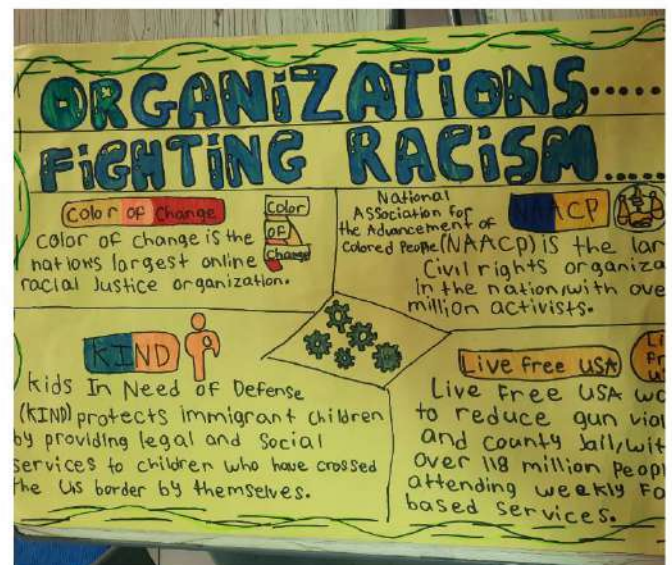 ORGANiZATiONS.....
FiGHTiNG RACiSM....
Color of Change
Color
OF
Change
Color of change is the
nations largest online
racial Justice organization.
National
Association for
the Advancement of
Colored People (NAACP) is the lar
Civil rights organiza
in the nation, with ove
million activists.
NAACP
KIND
kids In Need of Defense
(KIND) protects immigrant children
by providing legal and Social
services to children who have crossed
the Us border by themselves.
Live free USA
Li
Fr
Live Free USA wo
to reduce gun viol
and county Jail, wit
over 118 million peopl
attending weekly Fa
based services.